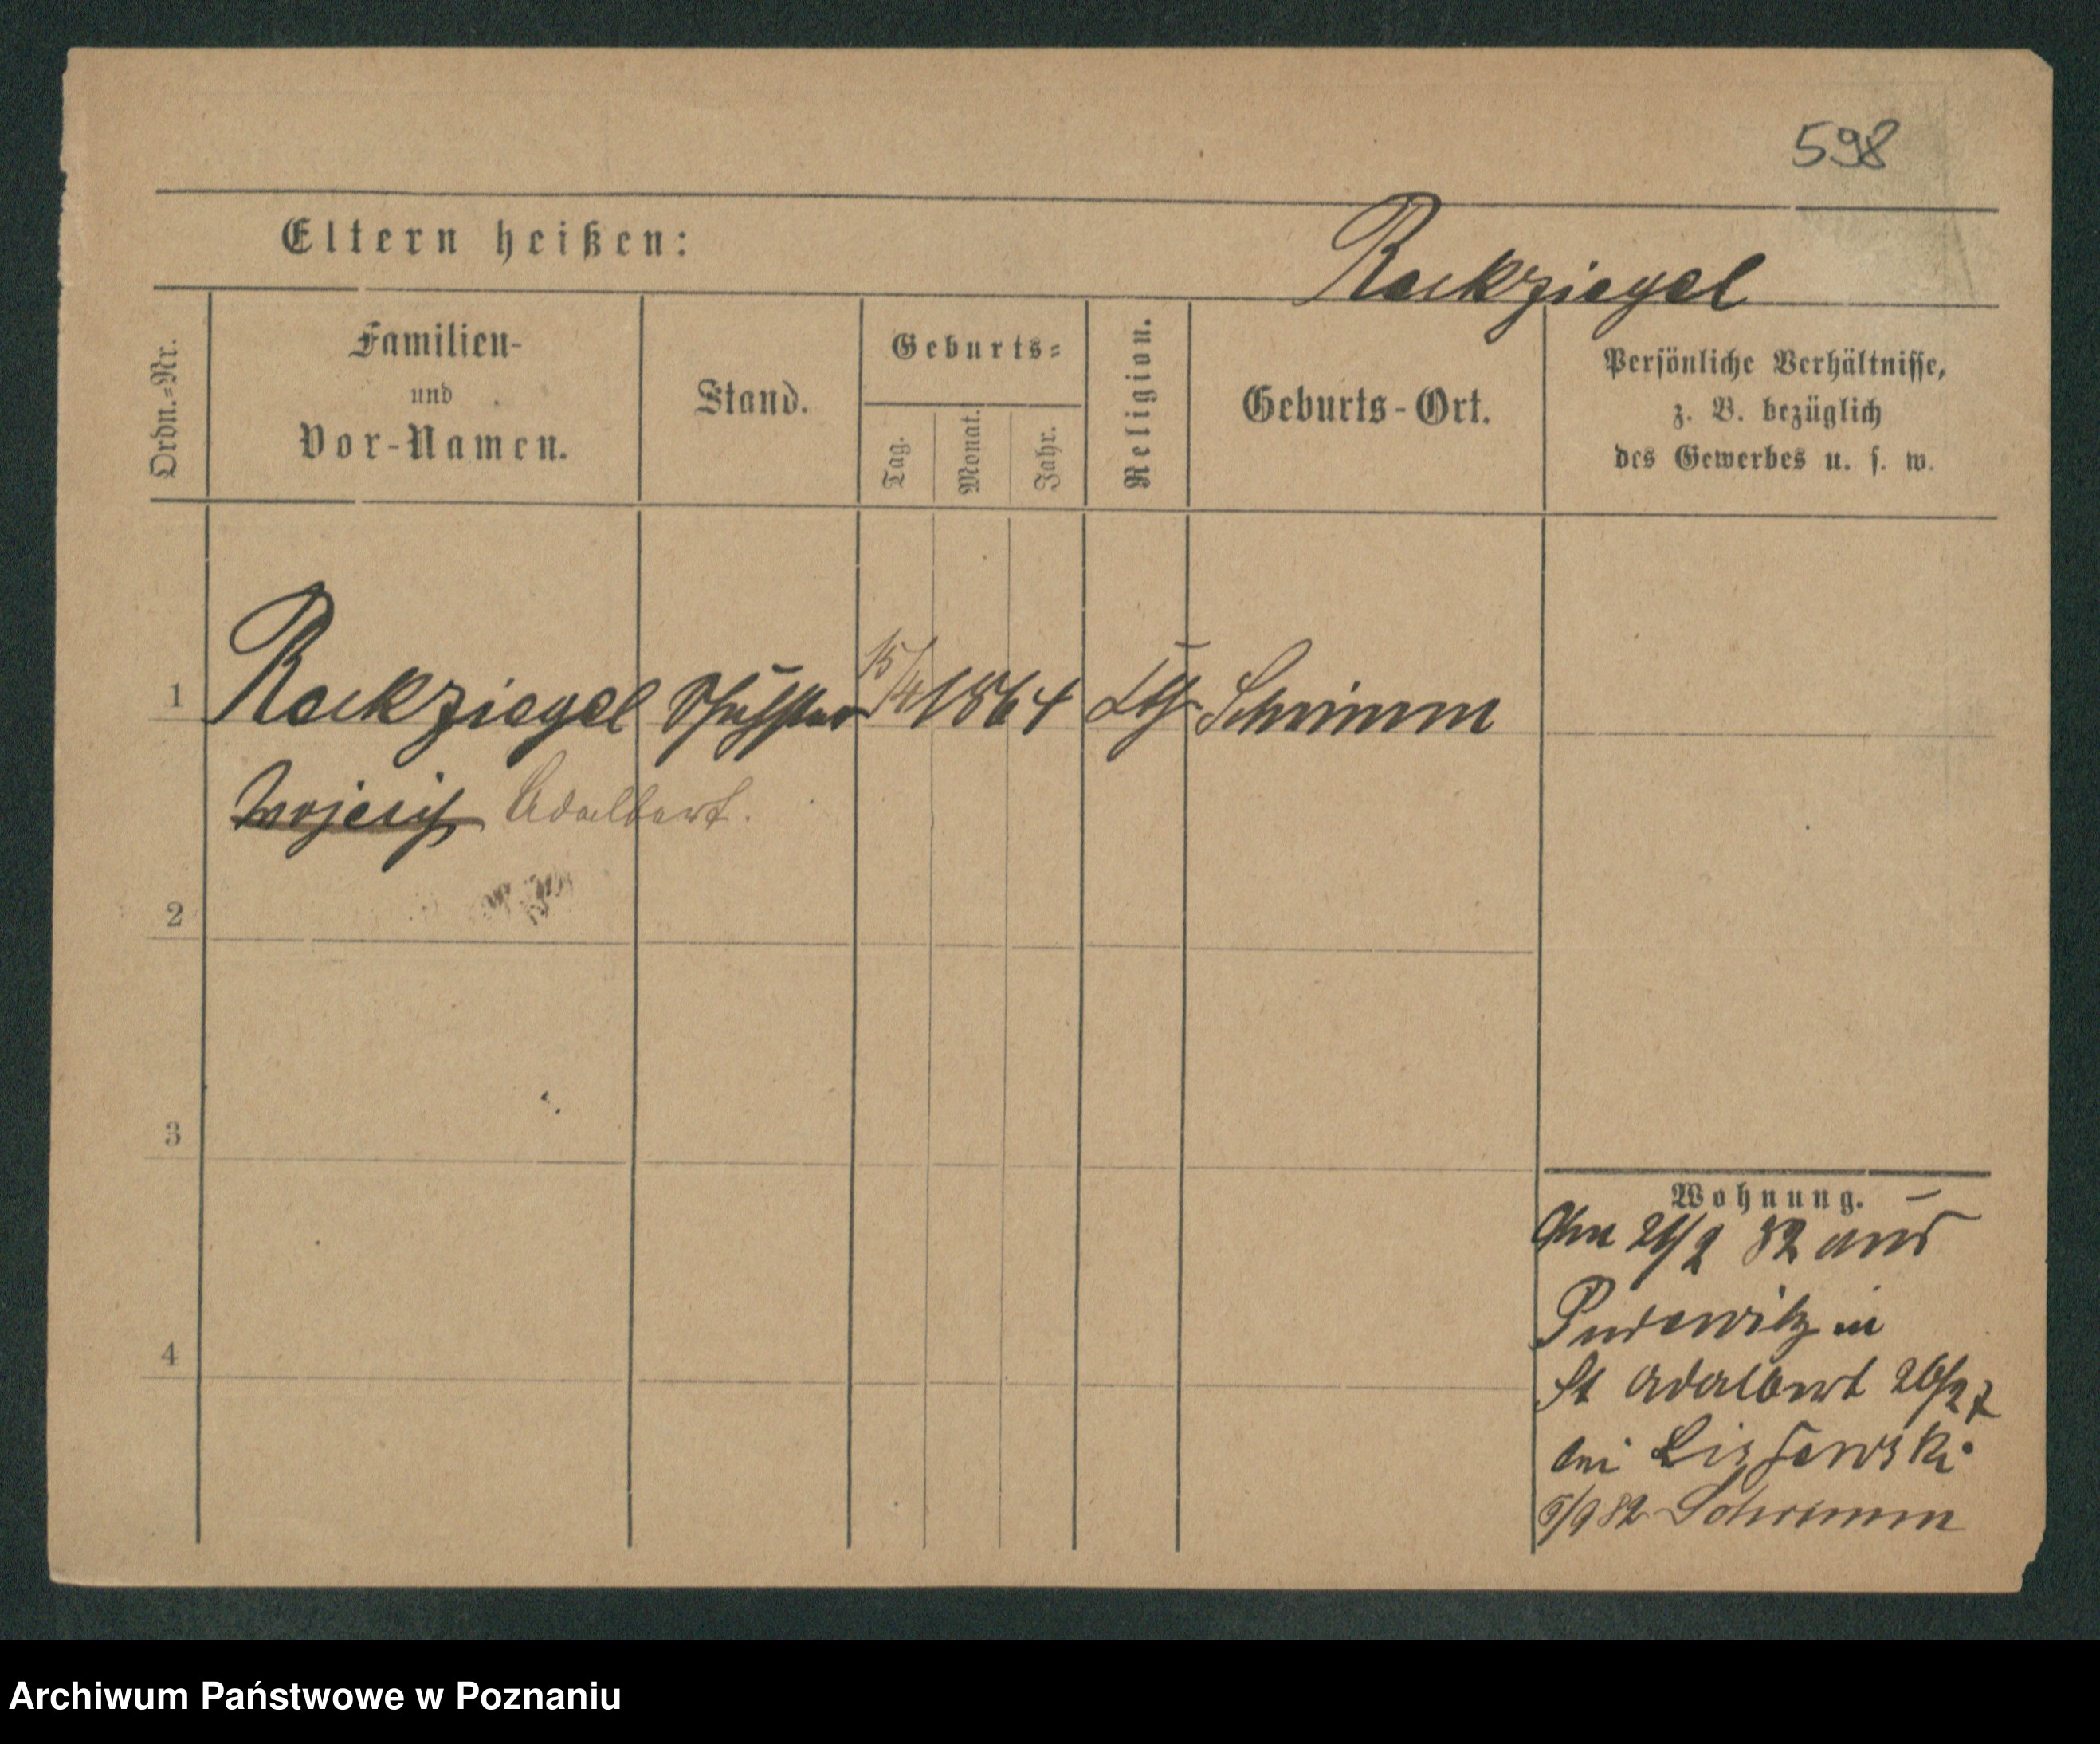 598
Eltern heißen:
Rackziegel
Ordn.=Nr.
Familien-
und
Vor-Namen.
Stand.
Geburts=
Tag.
Monat.
Jahr.
Religion.
Geburts-Ort.
Persönliche Verhältnisse,
z. B. bezüglich
des Gewerbes u. s. w.
1 Rackziegel 15/4 1864 Schrimm
Adalbert.
2
3
4
Wohnung.
82 aus
Pudewitz in
St Adalbert 26/27
bei Lissewski
5/9 82 Schrimm
Archiwum Państwowe w Poznaniu